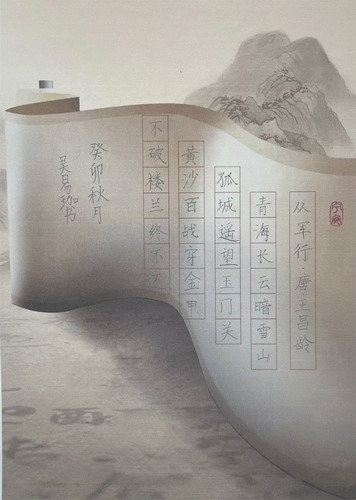 从军行·唐王昌龄
青海长云暗雪山
孤城遥望玉门关
黄沙百战穿金甲
不破楼兰终不还
癸卯秋月
吴易珈书